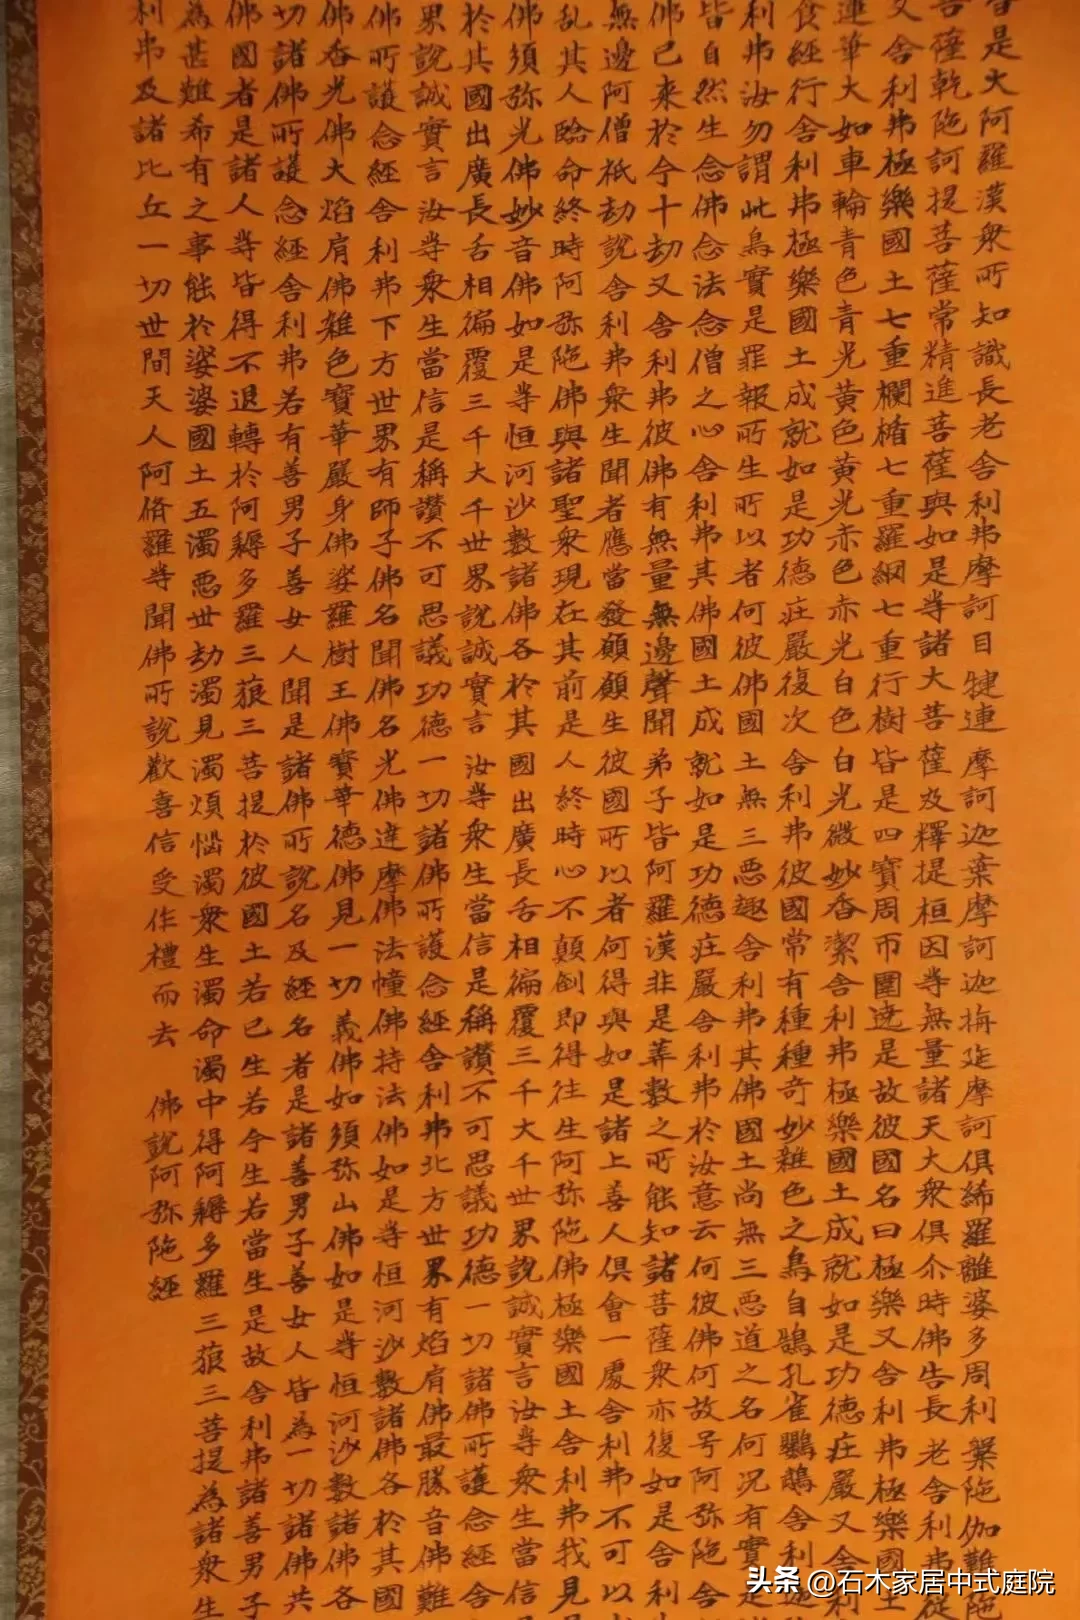 皆是大阿羅漢衆所知識長老舍利弗摩訶目犍連摩訶迦葉摩訶迦旃延摩訶俱絺羅離婆多周利槃陁伽難陁
菩薩乾陁訶提菩薩常精進菩薩與如是等諸大菩薩及釋提桓因等無量諸天大衆俱尒時佛告長老舍利弗從
又舍利弗極樂國土七重欄楯七重羅網七重行樹皆是四寶周帀圍遶是故彼國名曰極樂又舍利弗極樂國土
蓮華大如車輪青色青光黃色黃光赤色赤光白色白光微妙香潔舍利弗極樂國土成就如是功德莊嚴又舍利
食經行舍利弗極樂國土成就如是功德莊嚴復次舍利弗彼國常有種種奇妙雜色之鳥白鵠孔雀鸚鵡舍利迦
利弗汝勿謂此鳥實是罪報所生所以者何彼佛國土無三惡趣舍利弗其佛國土尚無三惡道之名何況有實是
皆自然生念佛念法念僧之心舍利弗其佛國土成就如是功德莊嚴舍利弗於汝意云何彼佛何故号阿弥陁舍
佛已來於今十劫又舍利弗彼佛有無量無邊聲聞弟子皆阿羅漢非是筭數之所能知諸菩薩衆亦復如是舍利
無邊阿僧祇劫說舍利弗衆生聞者應當發願願生彼國所以者何得與如是諸上善人俱會一處舍利弗不可以
乱其人臨命終時阿弥陁佛與諸聖衆現在其前是人終時心不顛倒即得往生阿弥陁佛極樂國土舍利弗我見
佛須弥光佛妙音佛如是等恒河沙數諸佛各於其國出廣長舌相徧覆三千大千世界說誠實言汝等衆生當信
於其國出廣長舌相徧覆三千大千世界說誠實言汝等衆生當信是稱讚不可思議功德一切諸佛所護念經舍
界說誠實言汝等衆生當信是稱讚不可思議功德一切諸佛所護念經舍利弗北方世界有焰肩佛最勝音佛難
佛所護念經舍利弗下方世界有師子佛名聞佛名光佛達摩佛法幢佛持法佛如是等恒河沙數諸佛各於其國
佛香光佛大焰肩佛雜色寶華嚴身佛娑羅樹王佛寶華德佛見一切義佛如須弥山佛如是等恒河沙數諸佛各
切諸佛所護念經舍利弗若有善男子善女人聞是諸佛所說名及經名者是諸善男子善女人皆為一切諸佛共
佛國者是諸人等皆得不退轉於阿耨多羅三藐三菩提於彼國土若已生若今生若當生是故舍利弗諸善男子
為甚難希有之事能於娑婆國土五濁惡世劫濁見濁煩惱濁衆生濁命濁中得阿耨多羅三藐三菩提為諸衆生
利弗及諸比丘一切世間天人阿脩羅等聞佛所說歡喜信受作禮而去 佛說阿弥陁經
头条 @石木家居中式庭院